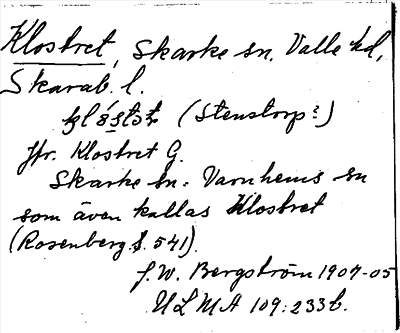 Klostret, Skarke sn, Valle hd,
Skarab. l.
(Stenstorp?)
Jfr. Klostret G.
Skarke sn = Varnhems sn
som även kallas Klostret
(Rosenberg s. 541).
J. W. Bergström 1904-05
ULMA 109:233b.